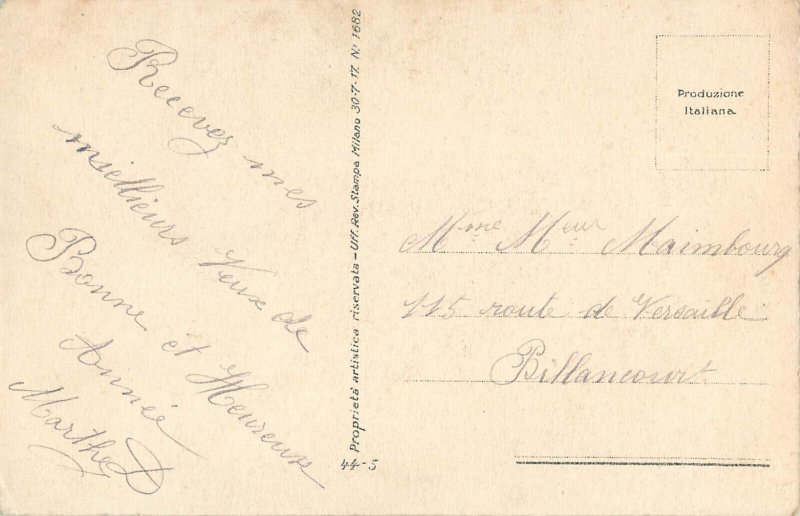 Recevez mes
meillieurs Veux de
Bonne et Heureuse
Année
Marthe D
Proprietà artistica riservata - Uff. Rev. Stampa Milano 30-7-17. N° 1682
44-5
Produzione
Italiana
Mme Meur Maimbourg
115 route de Versaille
Billancourt